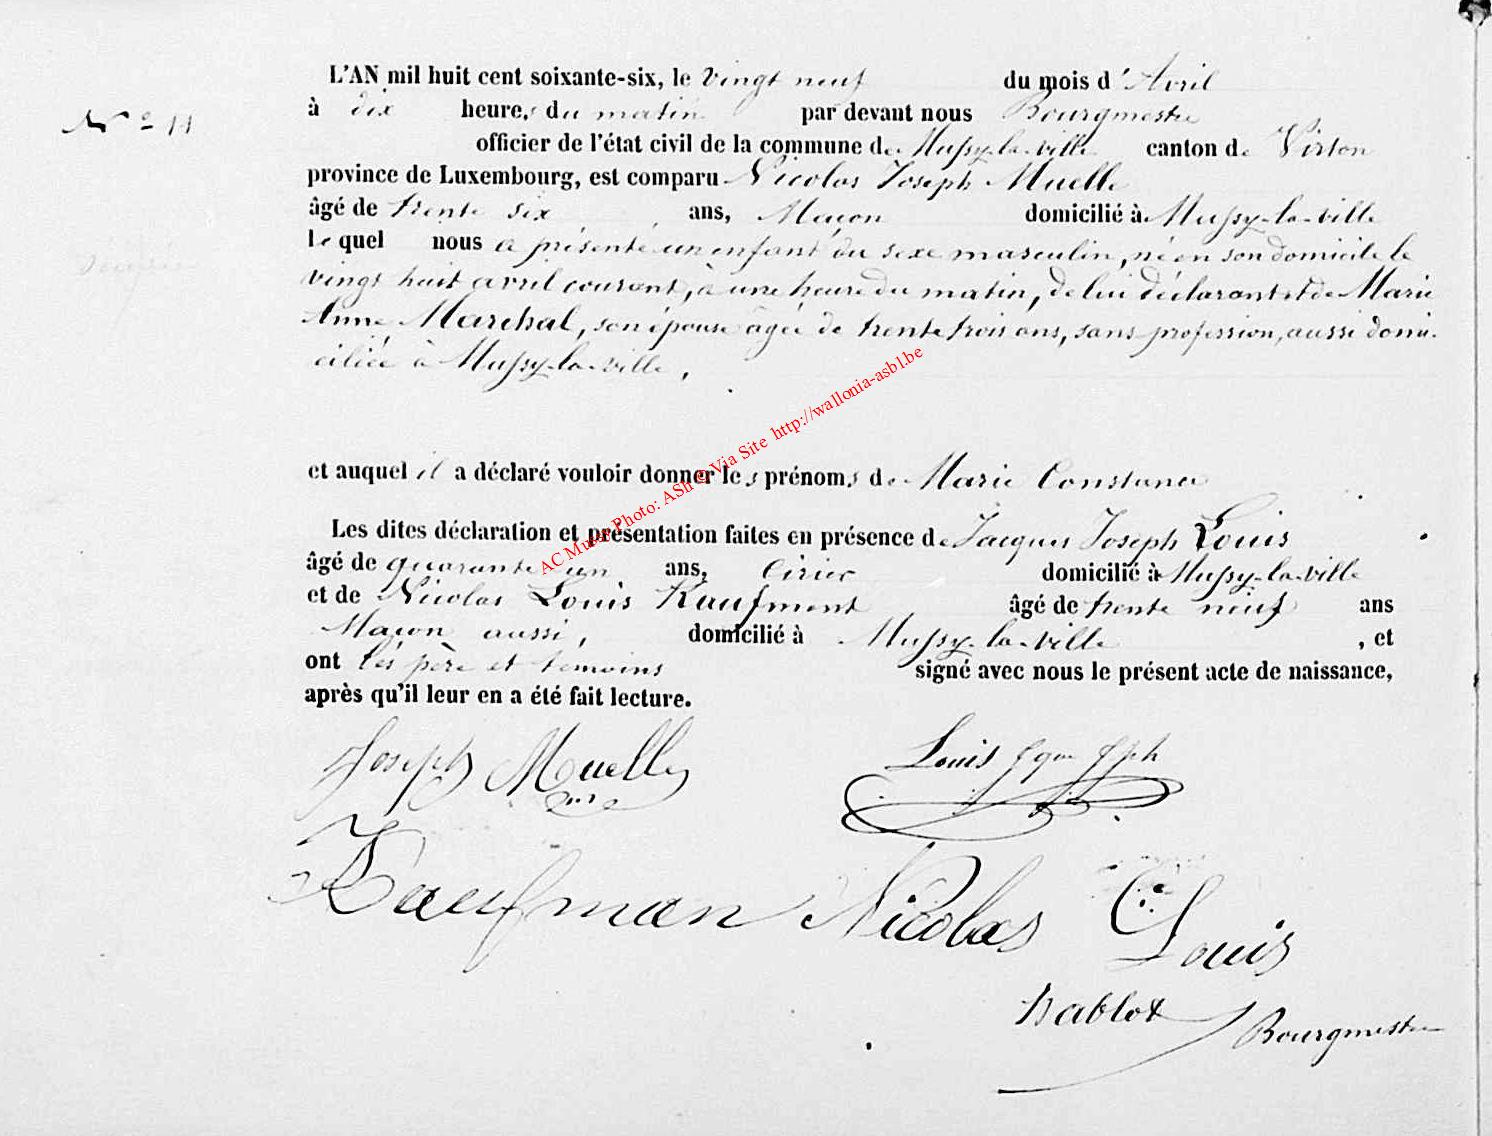 L'AN mil huit cent soixante-six, le vingt neuf du mois d'Avril
N° 11
à dix heures du matin par devant nous Bourgmestre
officier de l'état civil de la commune de Mussy-la-ville canton de Virton
province de Luxembourg, est comparu Nicolas Joseph Muelle
âgé de trente six ans, Maçon domicilié à Mussy-la-ville
lequel nous a présenté un enfant du sexe masculin, né en son domicile le
vingt huit avril courant, à une heure du matin, de lui déclarant et de Marie
Anne Marchal, son épouse âgée de trente trois ans, sans profession, aussi domi-
ciliée à Mussy-la-ville,
et auquel il a déclaré vouloir donner les prénoms de Marie Constance
Les dites déclaration et présentation faites en présence de Jacques Joseph Louis
âgé de quarante un ans, Cirier domicilié à Mussy-la-ville
et de Nicolas Louis Kaufmont âgé de trente neuf ans
Maçon aussi, domicilié à Mussy-la-ville, et
ont les père et témoins signé avec nous le présent acte de naissance,
après qu'il leur en a été fait lecture.
Joseph Muelle Louis Jque Jph
Kaufman Nicolas Louis
hablot Bourgmestre
AC Mussy Photo: ASh © Via Site http://wallonia-asbl.be